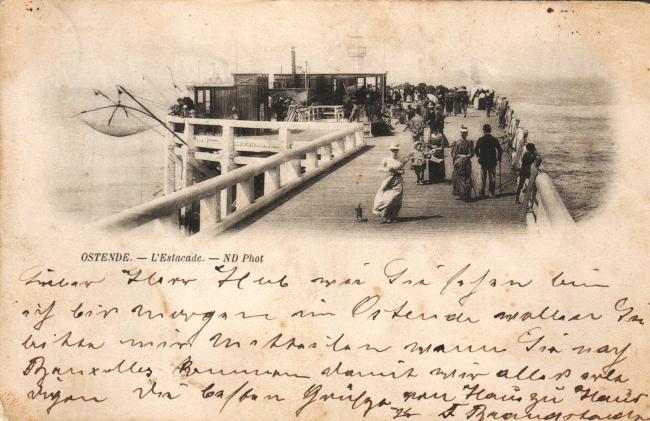 OSTENDE. — L'Estacade. — ND Phot
Lieber Herr Hub wie Sie sehen bin
ich bis morgen in Ostende wollen Sie
bitte mir mitteilen wann Sie nach
Bruxelles kommen damit wir alles erle
digen die besten Grüße von Haus zu Haus